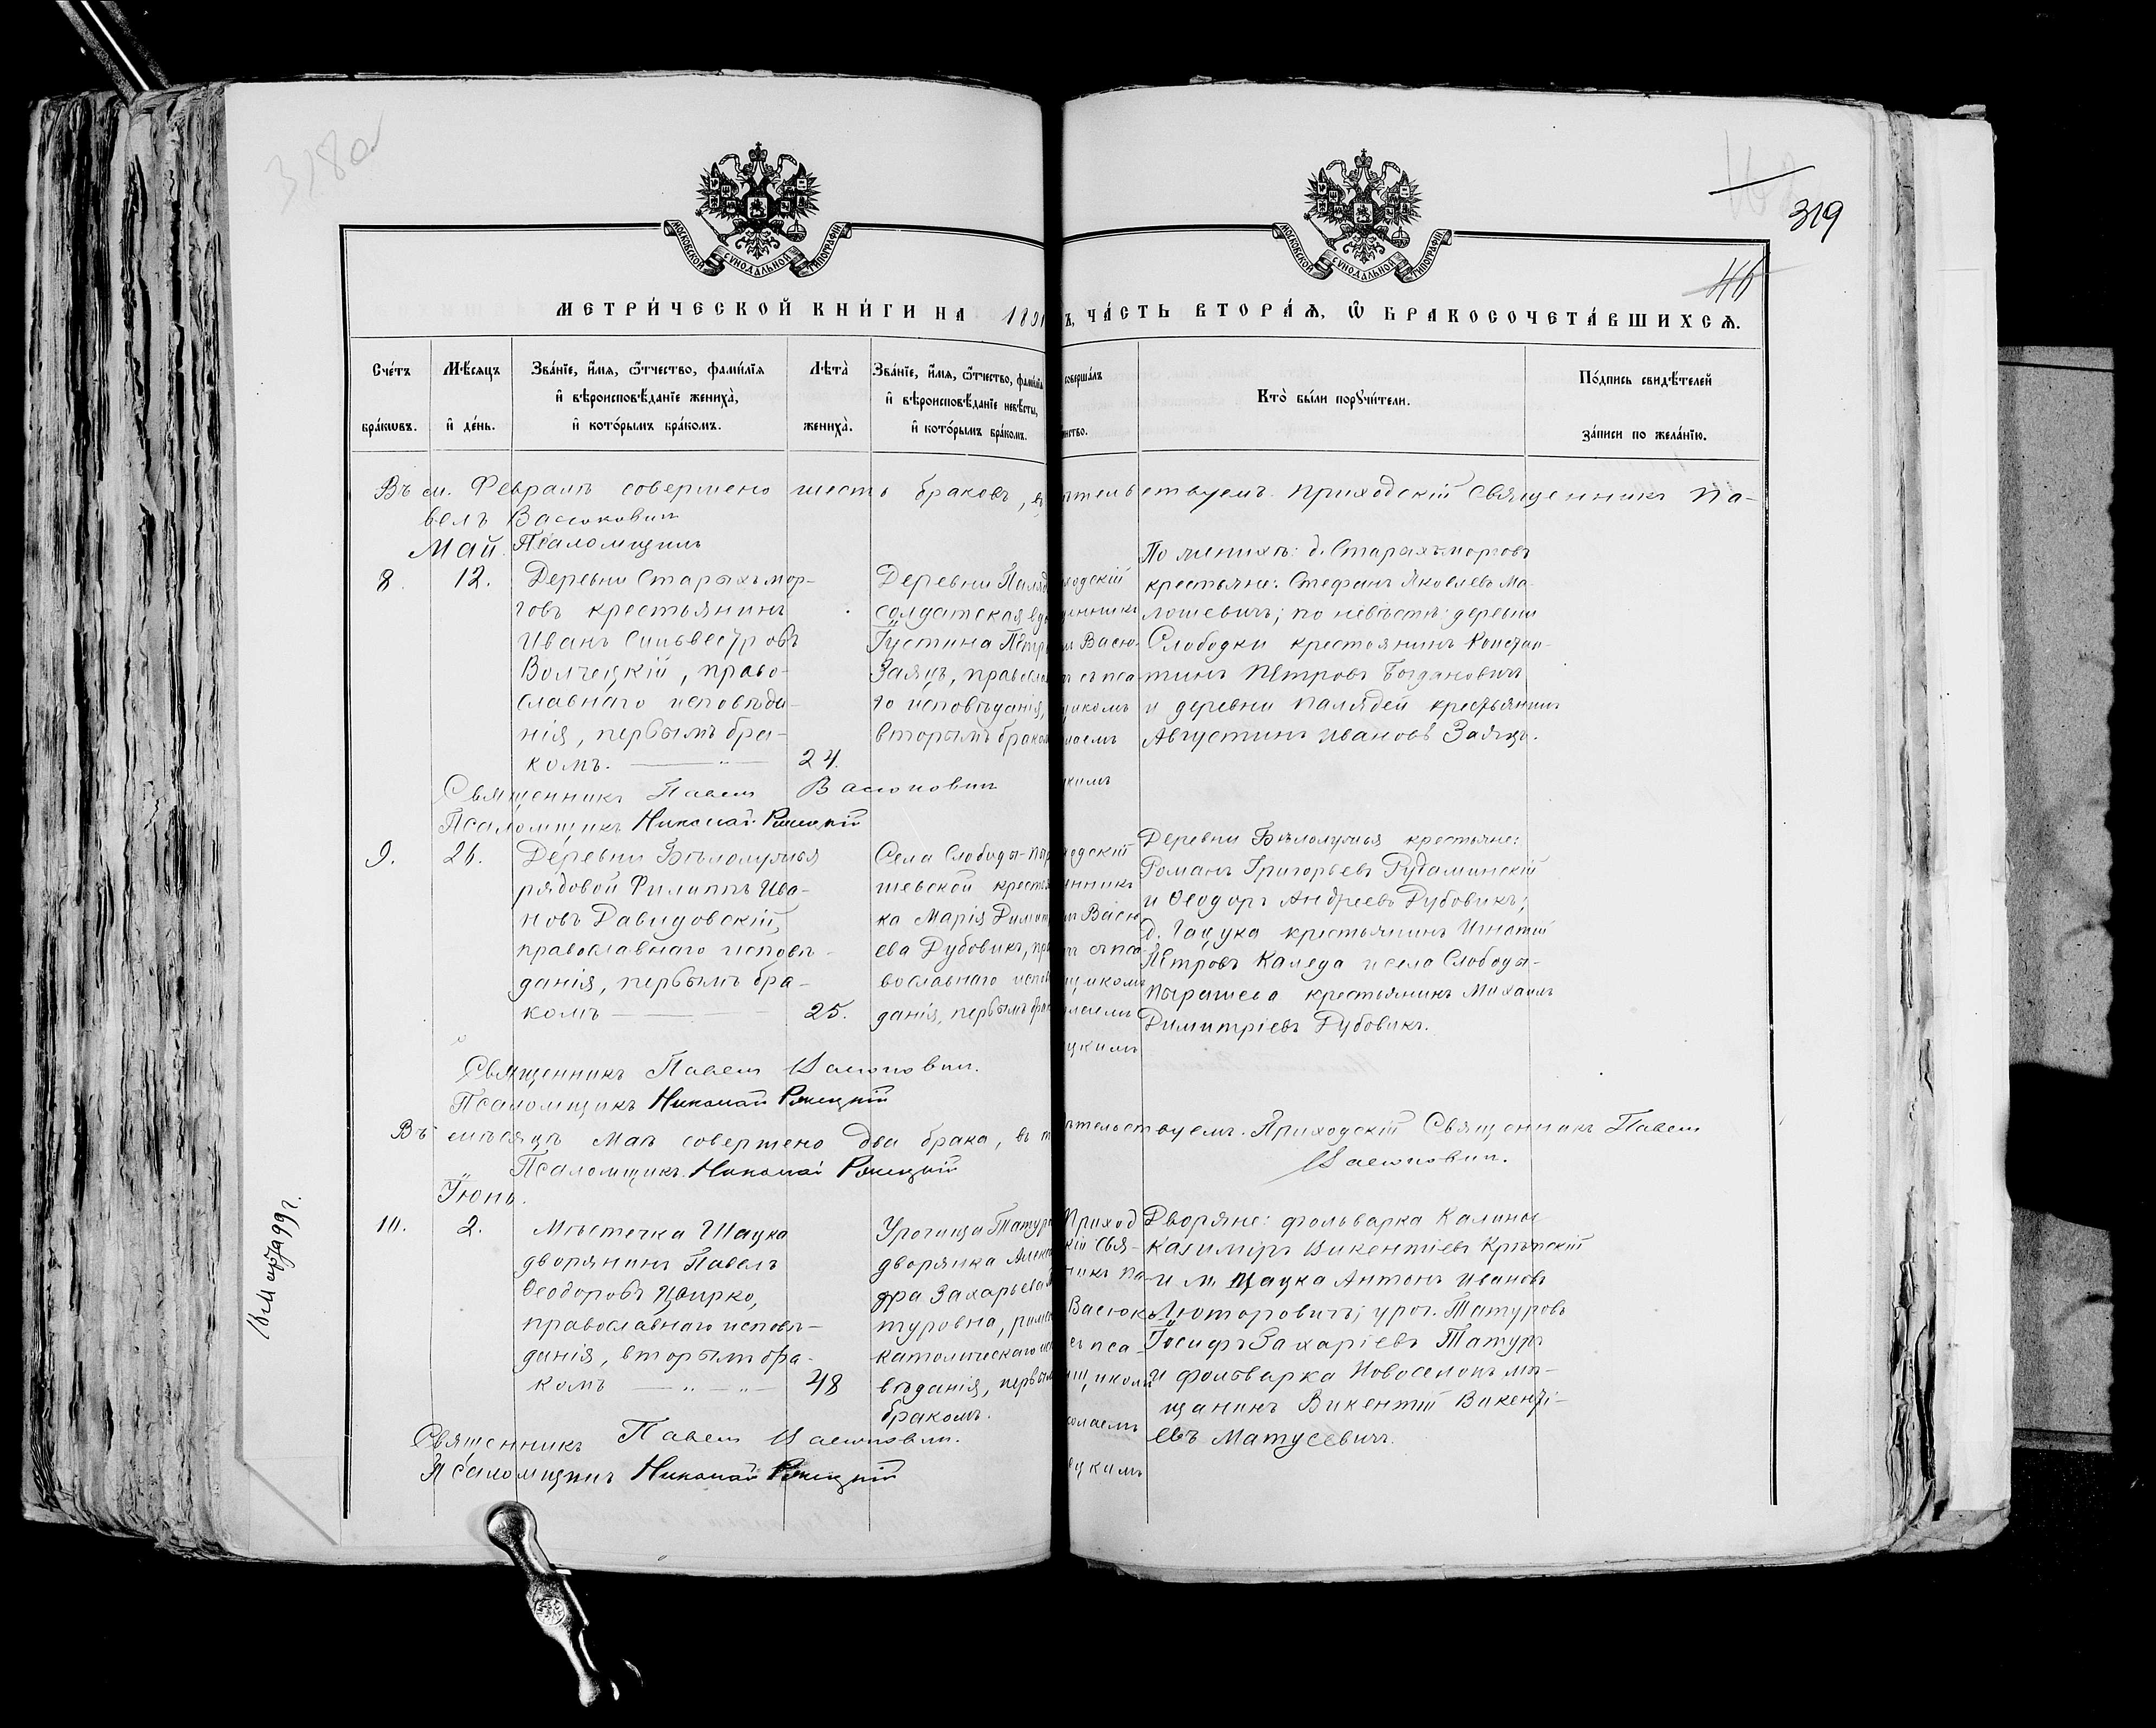 318об
319
46
МОСКОВСКОЙ СѴНОДАЛЬНОЙ ТИПОГРАФИИ
МОСКОВСКОЙ СѴНОДАЛЬНОЙ ТИПОГРАФИИ
МЕТРИ́ЧЕСКОЙ КНИ́ГИ НА 1891
Ъ, ЧА́СТЬ ВТОРА́Ѧ, Ѽ БРАКОСОЧЕТА́ВШИХСѦ.
Сче́тъ бра́кѡвъ.
Мѣ́сѧцъ и҆ де́нь.
Зва́нїе, и҆́мѧ, ѿтчество, фами́лїѧ и҆ вѣроисповѣ́данїе жениха̀, и҆ кото́рымъ бра́комъ.
Лѣта̀ жениха̀.
Зва́нїе, и҆́мѧ, ѿтчество, фами́лїѧ и҆ вѣроисповѣ́данїе невѣ́сты, и҆ кото́рымъ бра́комъ.
соверша́лъ
инство.
Кто̀ бы́ли порꙋчи́тели.
По́дпись свидѣ́телей за́писи по жела́нїю.
Въ м. Февралѣ совершено шесть браковъ, въ
ѣтельствуемъ. Приходскій Священникъ Па-
велъ Васюковичъ
Псаломщикъ
Май.
8.
12.
Деревни Старыхъ мор-
говъ крестьянинъ
Иванъ Сильвестровъ
Волчецкій, право-
славнаго исповѣда-
нія, первымъ бра-
комъ.
24.
Деревни Паляд
солдатская вдо
Густина Петро
Заяцъ, православ
го исповѣданія,
вторымъ браком
ходскій
щенникъ
лъ Васю-
ъ съ пса-
щикомъ
лаемъ
цкимъ
По женихѣ: д. Старыхъ морговъ
крестьяне: Стефанъ Яковлевъ Ма-
лошевичъ; по невѣстѣ: деревни
Слободки крестьянинъ Констан-
тинъ Петровъ Богдановичъ
и деревни Палядей крестьянинъ
Августинъ Ивановъ Заяцъ.
Священникъ Павелъ Васюковичъ
Псаломщикъ Николай
9.
26.
Деревни Бѣлолужья
рядовой Филиппъ Ива-
новъ Давидовскій,
православнаго исповѣ-
данія, первымъ бра-
комъ
25.
Села Слободы-Пыр
шевской крестья
ка Марія Димит
ева Дубовикъ, пра
вославнаго испов
данія, первымъ бра
ходскій
енникъ
лъ Васю
ъ съ пса-
щикомъ
олаемъ
цкимъ
Деревни Бѣлолужья крестьяне:
Романъ Григорьевъ Рудаминскій
и Ѳеодоръ Андреевъ Дубовикъ;
д. Гацука крестьянинъ Игнатій
Петровъ Каледа и села Слободы-
Пырашева крестьянинъ Михаилъ
Димитріевъ Дубовикъ.
Священникъ Павелъ Васюковичъ.
Псаломщикъ Николай
Въ мѣсяцѣ Маѣ совершено два брака, въ
ѣтельствуемъ. Приходскій Священникъ Павелъ
Васюковичъ.
Псаломщикъ Николай
Іюнь.
10.
2.
Мѣстечка Шацка
дворянинъ Павелъ
Ѳеодоровъ Цвирко,
православнаго исповѣ-
данія, вторымъ бра-
комъ
48
Урочища Татур
дворянка Алекса
дра Захарьева
туровна, римс
католическаго ис
вѣданія, первым
бракомъ.
Приход
кій Свя-
никъ Па-
Васюк
съ пса-
щикомъ
колаемъ
цкимъ
Дворяне: фольварка Калины
Казиміръ Викентіевъ Крупскій
и м. Шацка Антонъ Ивановъ
Лютаровичъ; уроч. Татуровъ
Іосифъ Захаріевъ Татуръ
и фольварка Новоселокъ мѣ-
щанинъ Викентій Викенті-
евъ Матусевичъ.
Священникъ Павелъ Васюковичъ.
Псаломщикъ Николай
16 Марта 99 г.